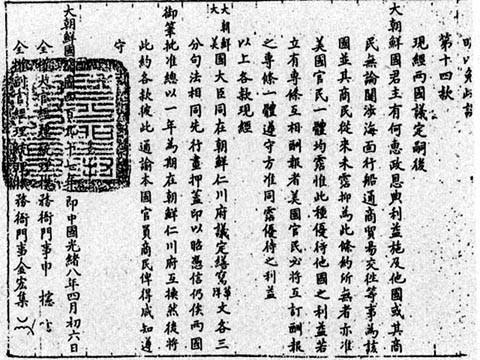 明以免歧誤
第十四款
現經兩國議定嗣後
大朝鮮國君主有何惠政恩典利益施及他國或其商
民無論關涉海面行船通商貿易交往等事為該
國並其商民從來未霑抑為此條約所無者亦准
美國官民一體均霑惟此種優待他國之利益若
立有專條互相酬報者美國官民必將互訂酬報
之專條一體遵守方准同霑優待之利益
以上各款現經
大朝鮮大美國大臣同在朝鮮仁川府議定繕寫華洋文各三
分句法相同先行畫押蓋印以昭憑信仍俟兩國
御筆批准總以一年為期在朝鮮仁川府互換然後將
此約各款彼此通諭本國官員商民俾得咸知遵
守
大朝鮮國開國四百九十一年即中國光緒八年四月初六日
全權大官經理統理機務衙門事申櫶
全權副官經理統理機務衙門事金宏集